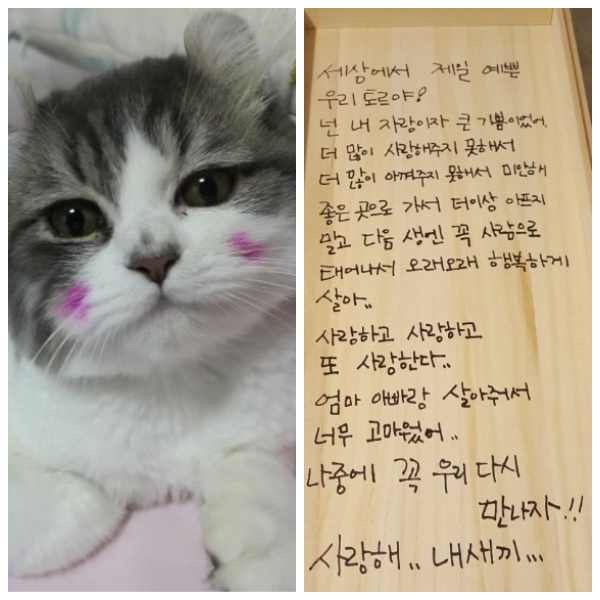 세상에서 제일 예쁜
우리 토르야?
넌 내 자랑이자 큰 기쁨이었어.
더 많이 사랑해주지 못해서
더 많이 아껴주지 못해서 미안해
좋은 곳으로 가서 더이상 아프지
말고 다음 생엔 꼭 사람으로
태어나서 오래오래 행복하게
살아..
사랑하고 사랑하고
또 사랑한다..
엄마 아빠랑 살아주어서
너무 고마웠어..
나중에 꼭 우리 다시
만나자!!
사랑해.. 내새끼...